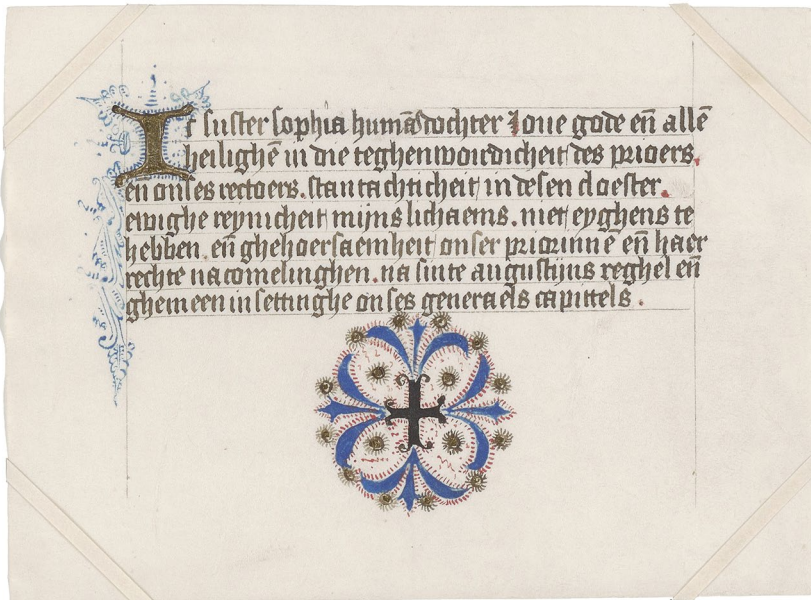 Ic suster sophia humãsdochter gloue gode eñ allẽ
heilighẽ in die teghenwoirdicheit des prioers.
en onses rectoers. stantachticheit in desen cloester.
ewighe reynicheit mijns lichaems. niet eyghens te
hebben. eñ ghehoersaemheit onser priorinnẽ eñ haer
rechte nacomelinghen. na sinte augustijns reghel eñ
ghemeen insettinghe onses generaels capittels.